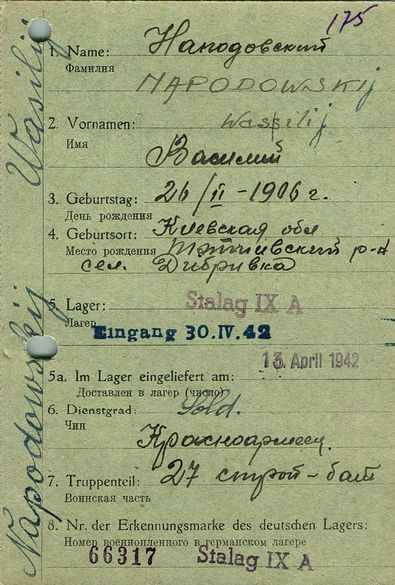 175
1. Name: Наподовский
Фамилия
NAPODOWSKIJ
2. Vornamen: Wassilij
Имя
Василий
3. Geburtstag: 26/II-1906 г.
День рождения
4. Geburtsort: Киевская обл
Место рождения Тэтиевский р-н
сел. Дибривка
5. Lager: Stalag IX A
Лагерь
Eingang 30.IV.42
13. April 1942
5a. Im Lager eingeliefert am:
Доставлен в лагерь (число)
6. Dienstgrad: Sold.
Чин
Красноармеец
7. Truppenteil: 27 строй-бат
Воинская часть
8. Nr. der Erkennungsmarke des deutschen Lagers:
Номер военнопленного в германском лагере
66317 Stalag IX A
Napodowskij Wasilij